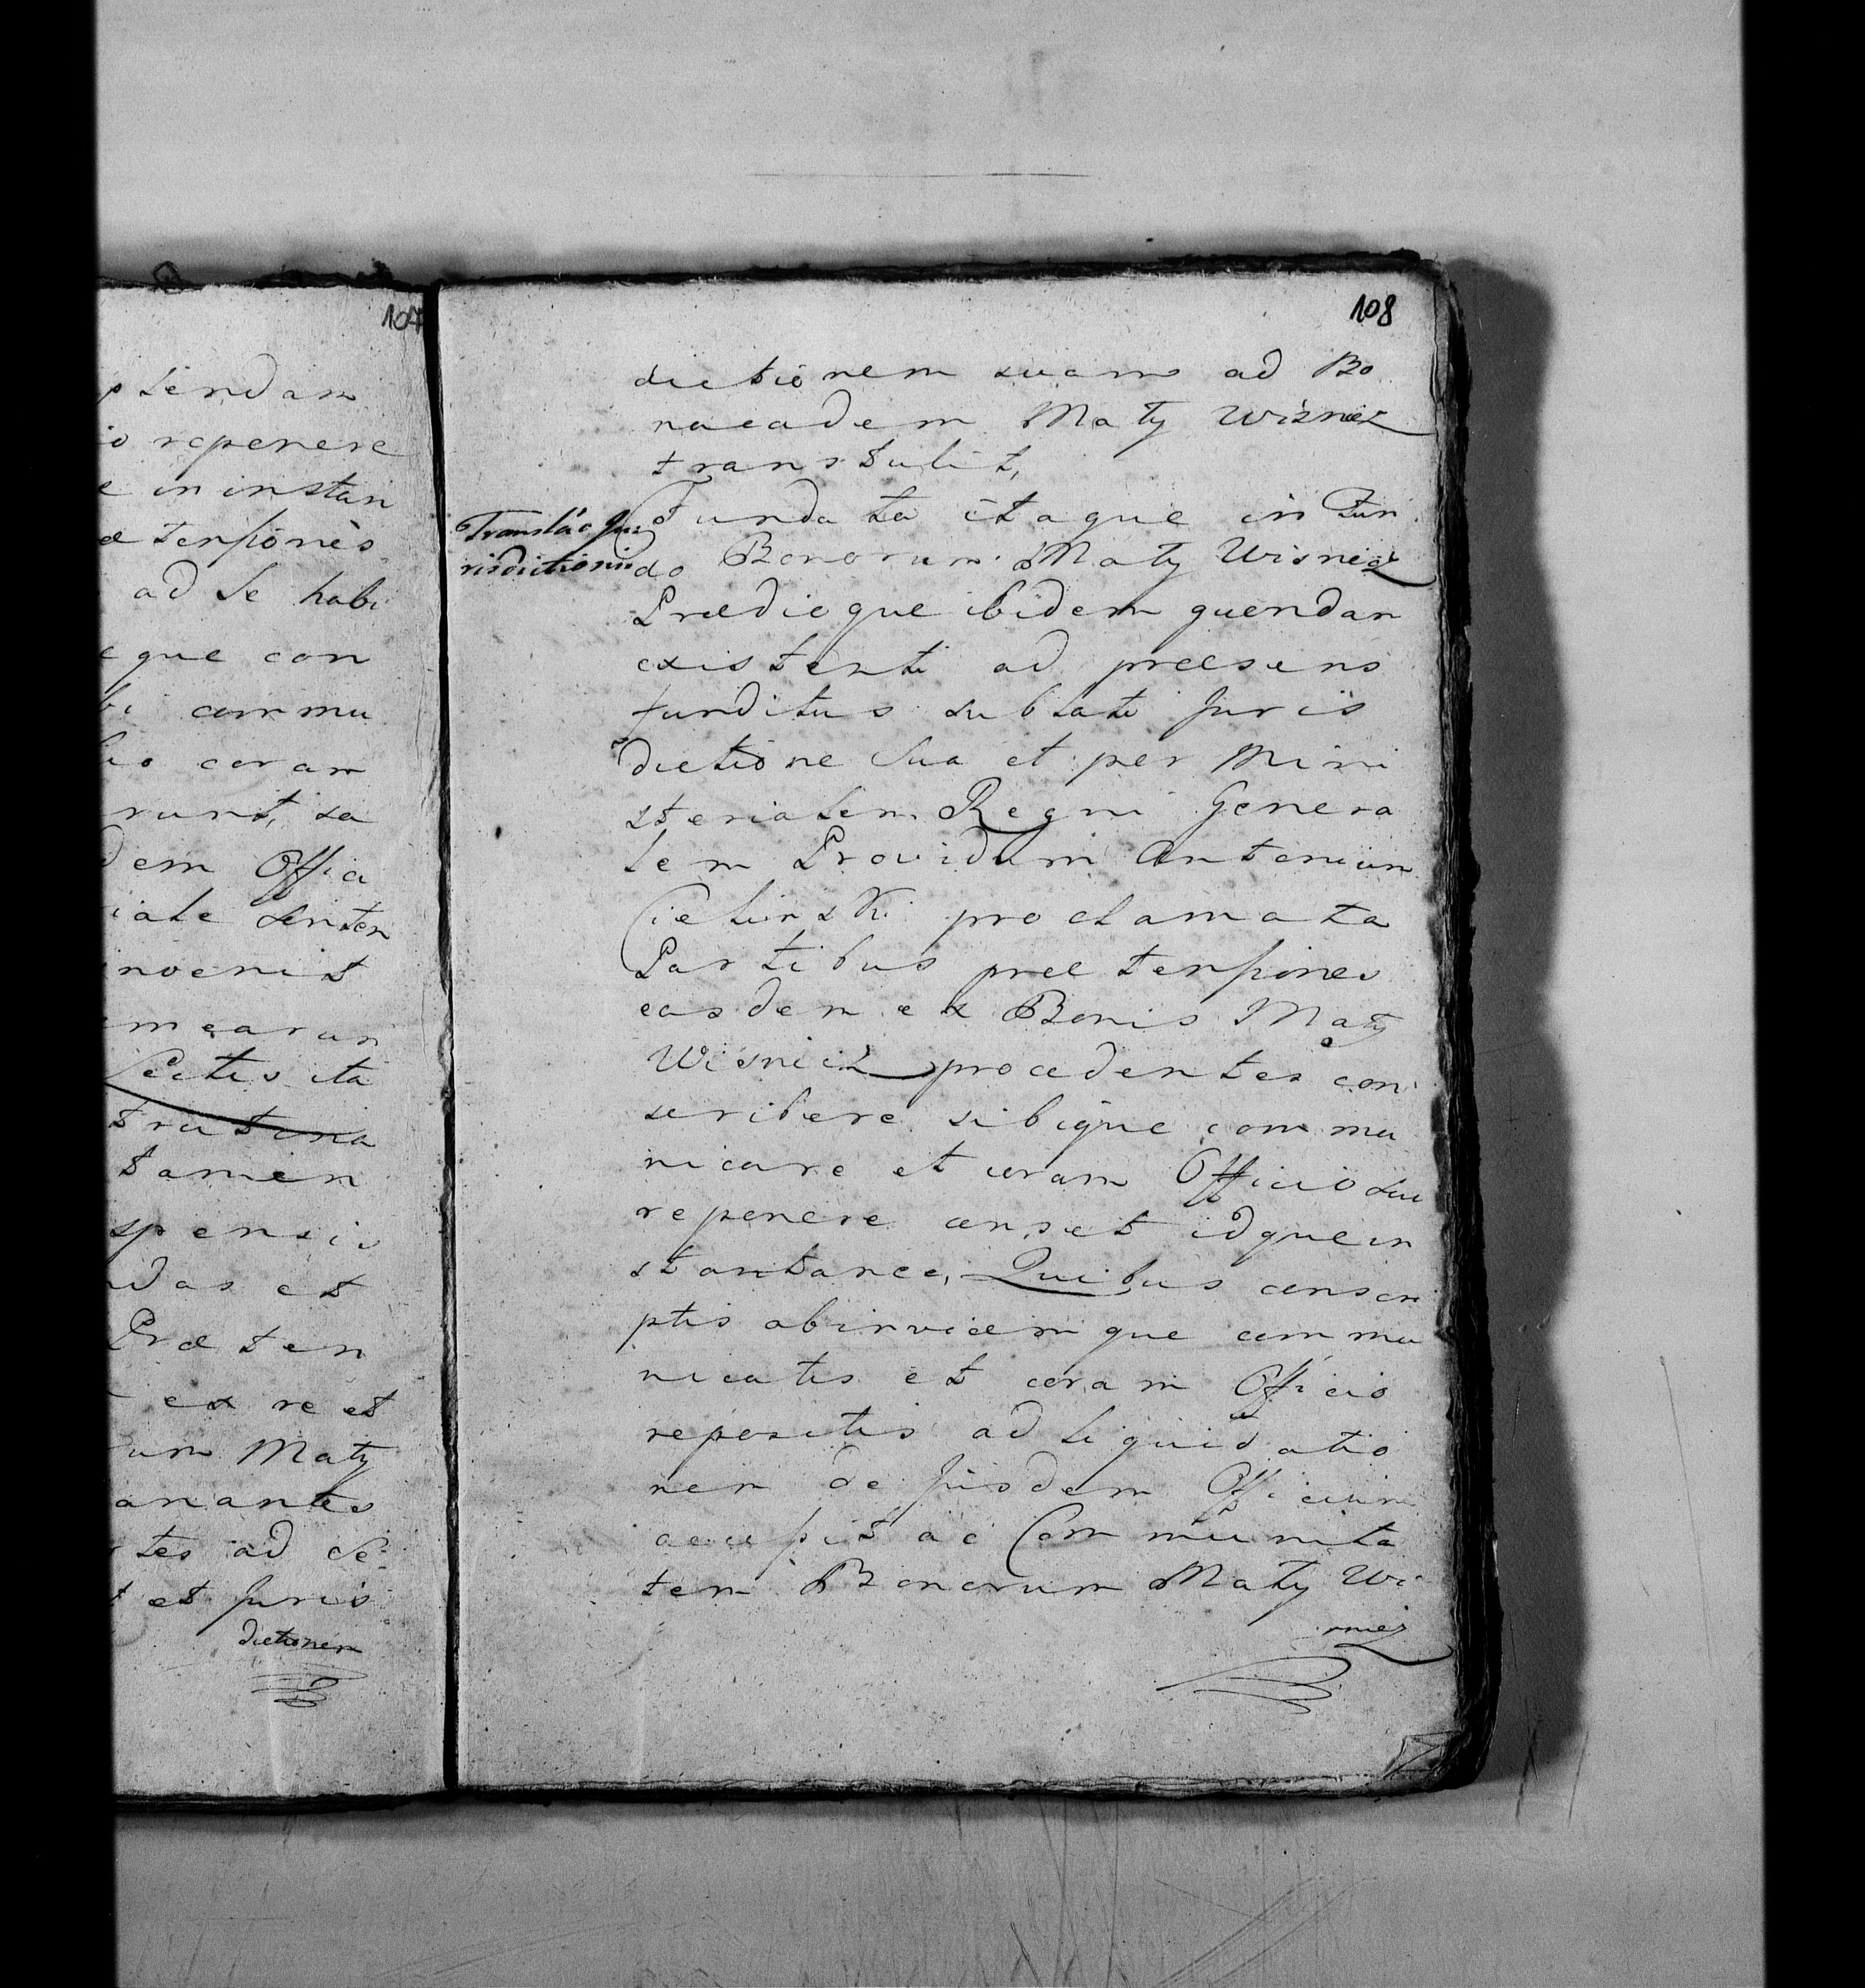 107
ptendam
io reponere
e in instan
ætensiones
ad Se habi
eque con
bi commu
lio coram
runt, sa
dem Offici
iale senten
invenit
m earum
Lectis ita
trutina
tamen
spensis
das et
Præten
ex re et
um Maty
anantes
tes ad Se
t et Juris
dictionem
108
dictionem suam ad Bo
na eadem Maty Wiśnicz
transtulit,
Transláo Ju
risdictionis
Fundata itaque in Fun
do Bonorum Maty Wisnicz
Prædioque ibidem quendam
existenti ad præsens
funditus sublati Juris
dictione Sua et per Mini
sterialem Regni Genera
lem Providum Antonium
Cielinski proclamata
Partibus prætensiones
easdem ex Bonis Maty
Wiśnicz procedentes con
scribere sibique commu
nicare et coram Officio suo
reponere censet idque in
stantanee, Quibus conscri
ptis abinvicemque commu
nicatis et coram Officio
repositis ad liquidatio
nem de Jiisdem Officium
accepit ac Communita
tem Bonorum Maty Wi
snicz